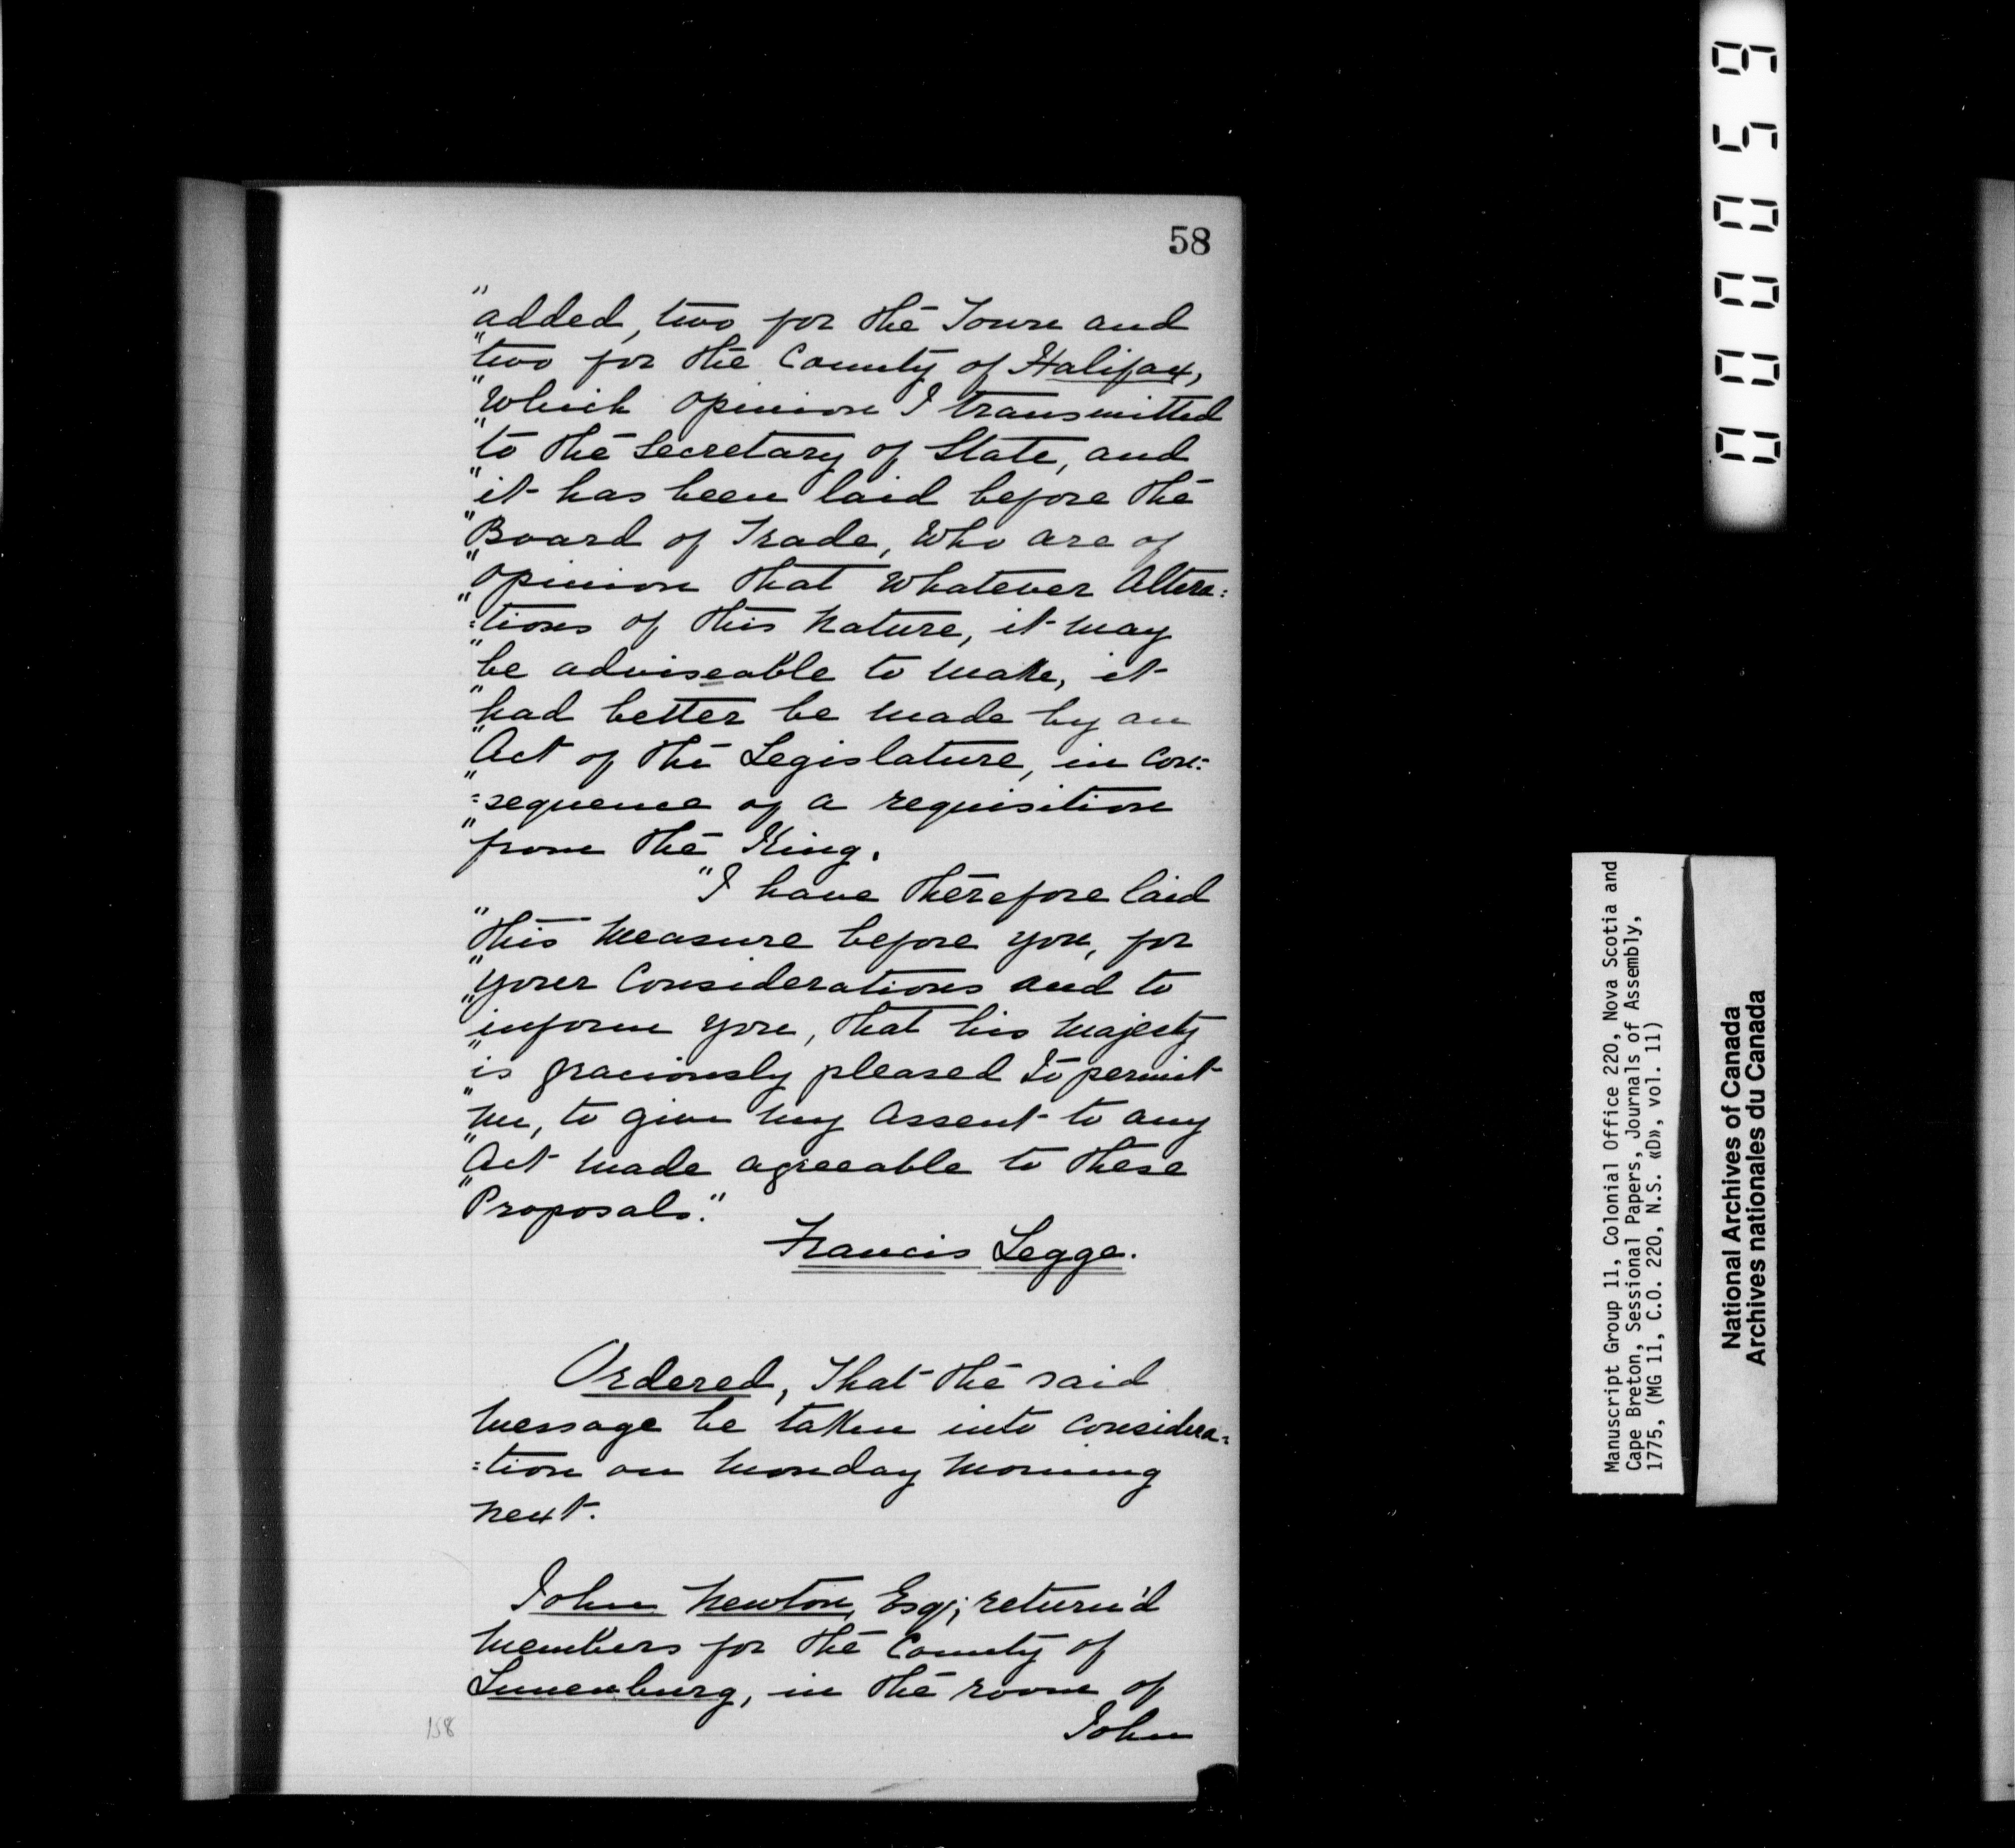 58
"added, two for the Town and
"two for the County of Halifax,
"Which opinion I transmitted
"to the Secretary of State, and
"it has been laid before the
"Board of Trade, Who are of
"opinion that Whatever Altera=
"=tions of this Nature, it may
"be adviseable to make, it
"had better be made by an
"Act of the Legislature, in Con=
"=sequence of a requisition
"from the King.
"I have therefore laid
"this Measure before you, for
"your Considerations and to
"inform you, that his Majesty
"is graciously pleased to permit
"me, to give my Assent to any
"Act made agreeable to these
"Proposals."
Francis Legge.
Ordered, That the said
Message be taken into Considera=
=tion on Monday Morning
next.
John Newton, Esqr; return'd
Members for the County of
Lunenburg, in the room of
John
158
000059
Manuscript Group 11, Colonial Office 220, Nova Scotia and
Cape Breton, Sessional Papers, Journals of Assembly,
1775, (MG 11, C.O. 220, N.S. «D», vol. 11)
National Archives of Canada
Archives nationales du Canada